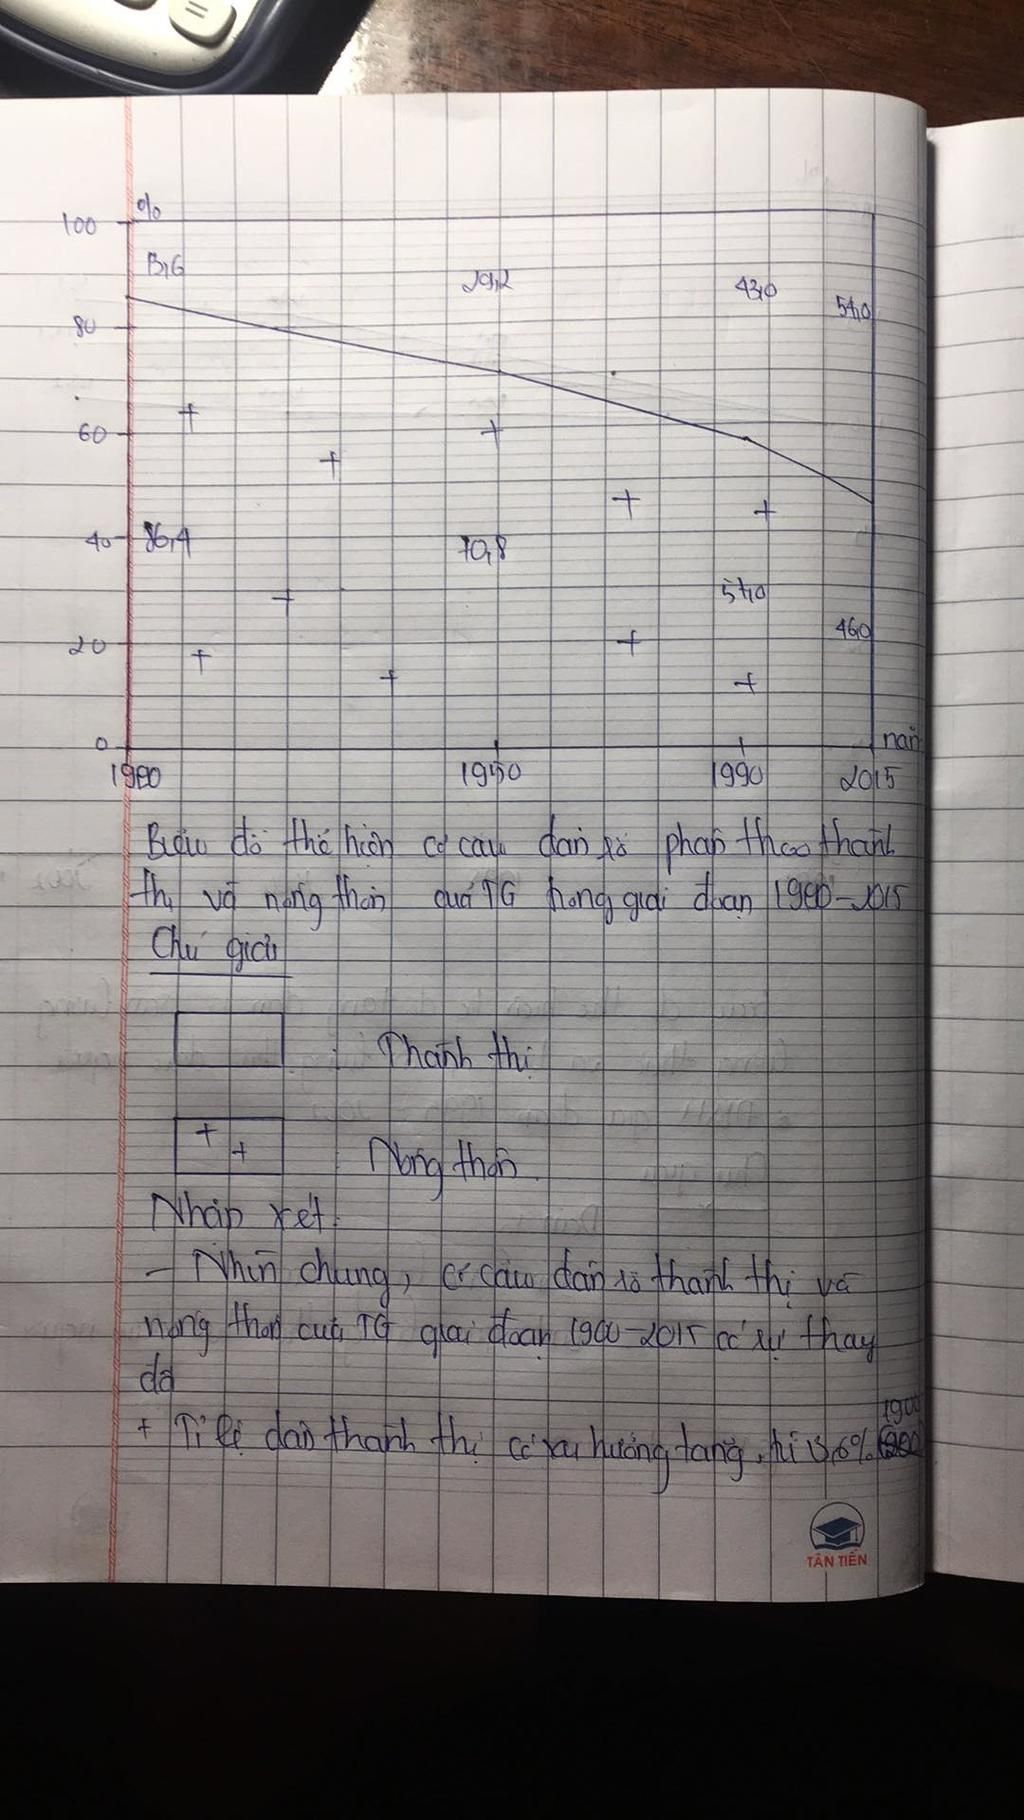 %
100
13,6 29,2 43,0 54,0
80
60
40 86,4 70,8 57,0
20 46,0
0 năm
1900 1950 1990 2015
Biểu đồ thể hiện cơ cấu dân số phân theo thành
thị và nông thôn của TG trong giai đoạn 1900-2015
Chú giải
: Thành thị
: Nông thôn
Nhận xét:
- Nhìn chung, cơ cấu dân số thành thị và
nông thôn của TG giai đoạn 1900-2015 có sự thay
đổi
1900
+ Tỉ lệ dân thành thị có xu hướng tăng, từ 13,6%
TÂN TIẾN